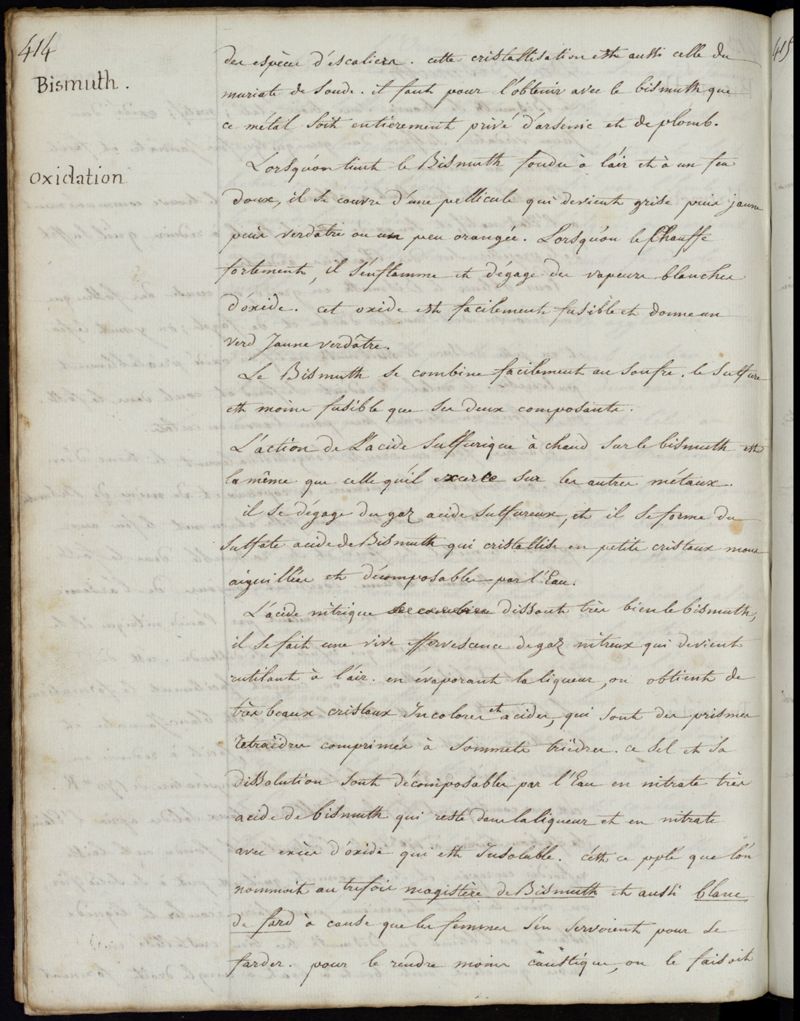 414
Bismuth.
oxidation
des espèces d'escaliers. cette cristallisation est aussi celle du
muriate de soude. il faut pour l'obtenir avec le bismuth que
ce métal soit entièrement privé d'arsenic et de plomb.
Lorsqu'on tient le Bismuth fondu à l'air et à un feu
doux, il se couvre d'une pellicule qui devient grise puis jaune
puis verdâtre ou un peu orangée. Lorsqu'on le chauffe
fortement, il s'enflamme et dégage des vapeurs blanches
d'oxide. cet oxide est facilement fusible et donne un
verd Jaune verdâtre.
Le Bismuth se combine facilement au soufre. le sulfure
est moins fusible que ses deux composants.
L'action de L'acide sulfurique à chaud sur le bismuth est
la même que celle qu'il exerce sur les autres métaux.
il se dégage du gaz acide sulfureux, et il se forme du
sulfate acide de Bismuth qui cristallise en petits cristaux mous
aiguillés et décomposables par l'Eau.
L'acide nitrique dissout très bien le bismuth,
il se fait une vive effervescence de gaz nitreux qui devient
rutilant à l'air. en évaporant la liqueur, on obtient de
très beaux cristaux Incolores et acides, qui sont des prismes
tétraèdres comprimés à sommets trièdres. ce sel et sa
dissolution sont décomposables par l'Eau en nitrate très
acide de bismuth qui reste dans la liqueur et en nitrate
avec excès d'oxide qui est Insoluble. c'est ce ppté que l'on
nommoit autrefois magistère de Bismuth et aussi blanc
de fard à cause que les femmes s'en servoient pour se
farder. pour le rendre moins caustique, on le faisoit
415